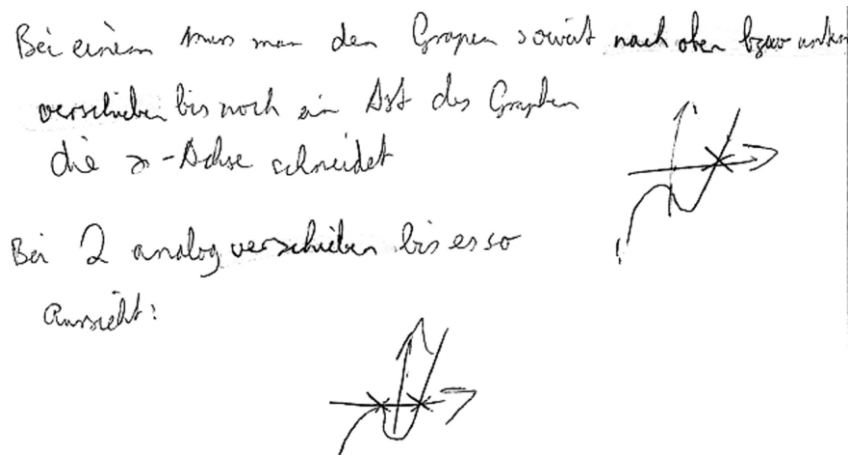 Bei einem muss man den Grapen soweit nach oben bzw unten
verschieben bis noch ein Ast des Graphen
die x-Achse schneidet
Bei 2 analog verschieben bis es so
aussieht: